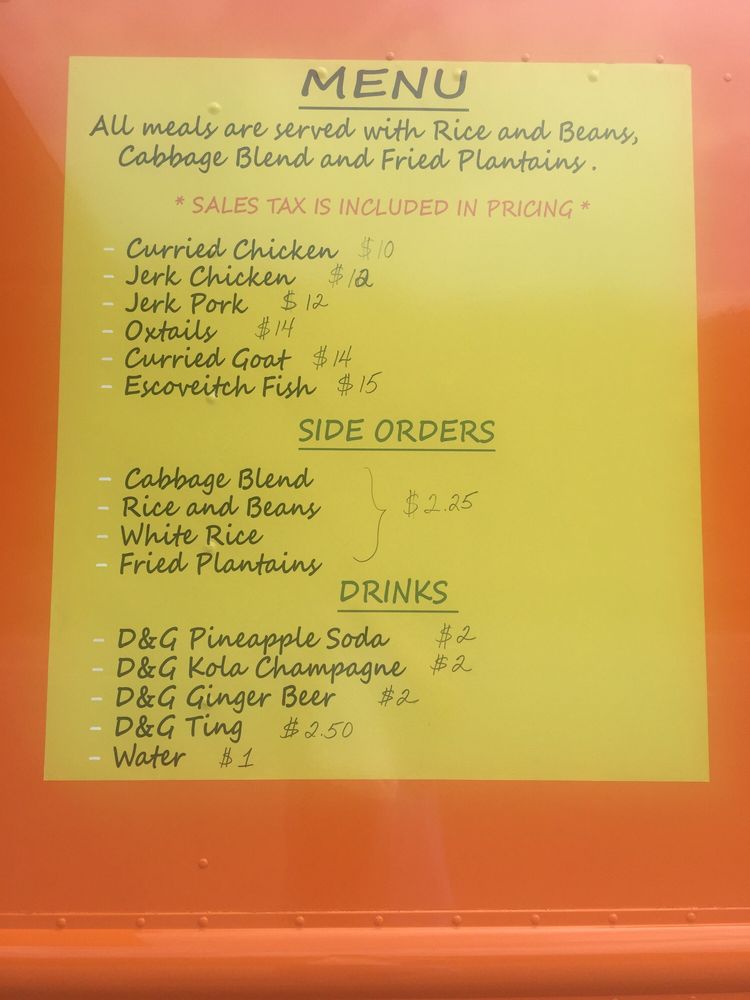 MENU
All meals are served with Rice and Beans,
Cabbage Blend and Fried Plantains.
* SALES TAX IS INCLUDED IN PRICING *
- Curried Chicken $10
- Jerk Chicken $12
- Jerk Pork $12
- Oxtails $14
- Curried Goat $14
- Escoveitch Fish $15
SIDE ORDERS
- Cabbage Blend
- Rice and Beans $2.25
- White Rice
- Fried Plantains
DRINKS
- D&G Pineapple Soda $2
- D&G Kola Champagne $2
- D&G Ginger Beer $2
- D&G Ting $2.50
- Water $1